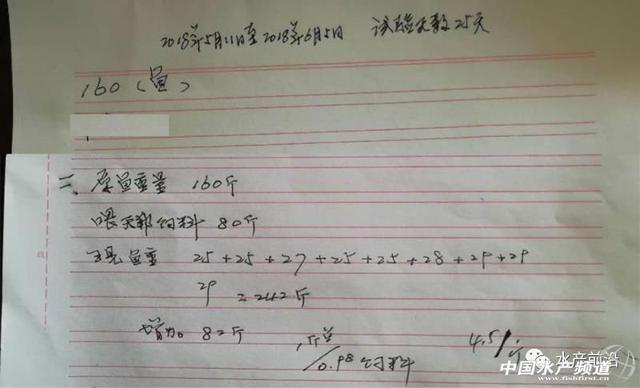 2018年5月11日至2018年6月5日 试验天数25天
160（鱼）
二、原鱼重量 160斤
喂天邦饲料 80斤
现鱼重 25+25+27+25+25+28+29+29
29 =242斤
增加 82斤 1斤鱼/0.98饲料 4.5/斤
水产前沿
中国水产频道
www.fishfirst.cn